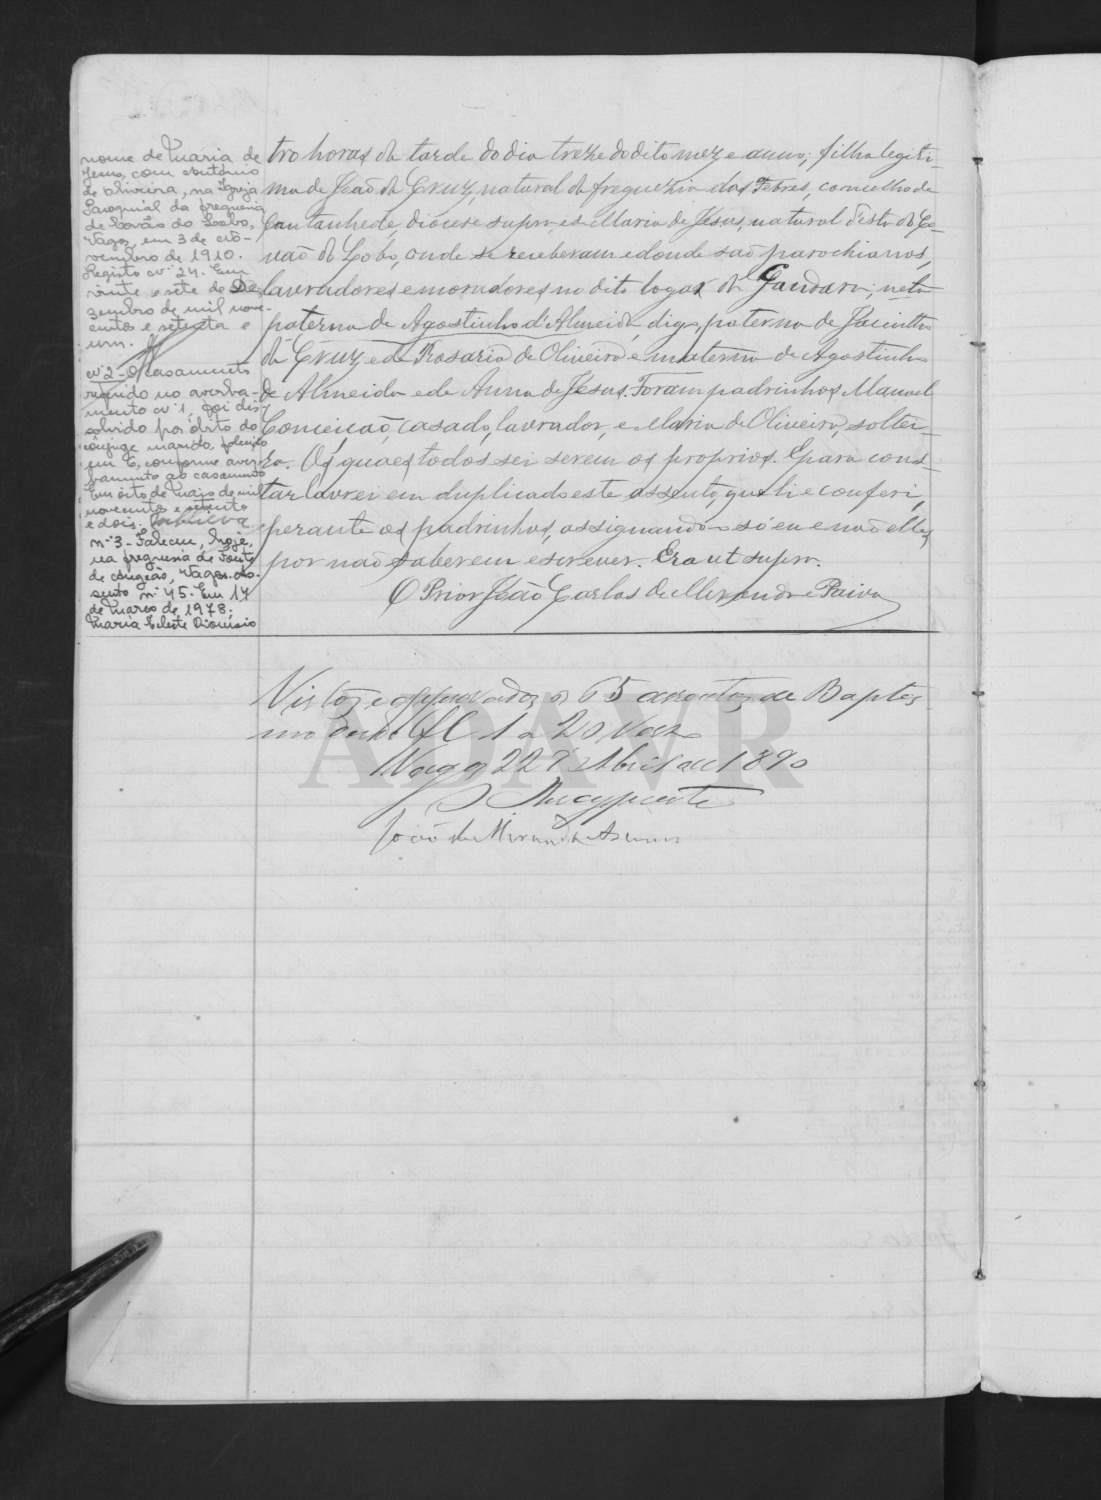 nome de Maria de
Jesus, com António
de Oliveira, na Igreja
Paroquial da freguesia
de Covão do Lobo,
Vagos, em 3 de No-
vembro de 1910.
Registo nº 24. Em
vinte e sete de De-
zembro de mil nove-
centos e setenta e
um.
nº 2 - O casamento
referido no averba-
mento nº 1, foi dis-
solvido por óbito do
cônjuge marido, falecido
em conforme aver-
bamento ao casamento
Em oito de Maio de mil
novecentos e setenta
e dois.
nº 3 - Faleceu, hoje,
na freguesia de Fonte
de Angeão, Vagos. As-
sento nº 45. Em 14
de Março de 1978.
Maria Celeste Dionísio
tro horas da tarde do dia treze do dito mez e anno; filha legiti-
ma de João da Cruz, natural da freguezia dos Febres, concelho de
Cantanhede, diocese supra, e Maria de Jesus, natural d'esta do Co-
vão do Lobo, onde se receberam e donde são parochianos,
lavradores e moradores no dito logar da Gandara; neta
paterna de Agostinho d'Almeida, digo, paterna de Jacintho
da Cruz e de Rosaria de Oliveira e materna de Agostinho
de Almeida e de Anna de Jesus. Foram padrinhos Manuel
Conceição, casado, lavrador, e Maria de Oliveira, soltei-
ra. Os quaes todos sei serem os proprios. E para cons-
tar lavrei em duplicado este assento, que li e conferi,
perante os padrinhos, assignando só eu e não elles
por não saberem escrever. Era ut supra.
O Prior João Carlos de Alexandre Paiva
Vistos e approvados os 65 assentos de Baptis
mo desde fl 1 a 20 verso
Vagos 22 d'Abril de 1890
O Arcypreste
João de Miranda
ADAVR